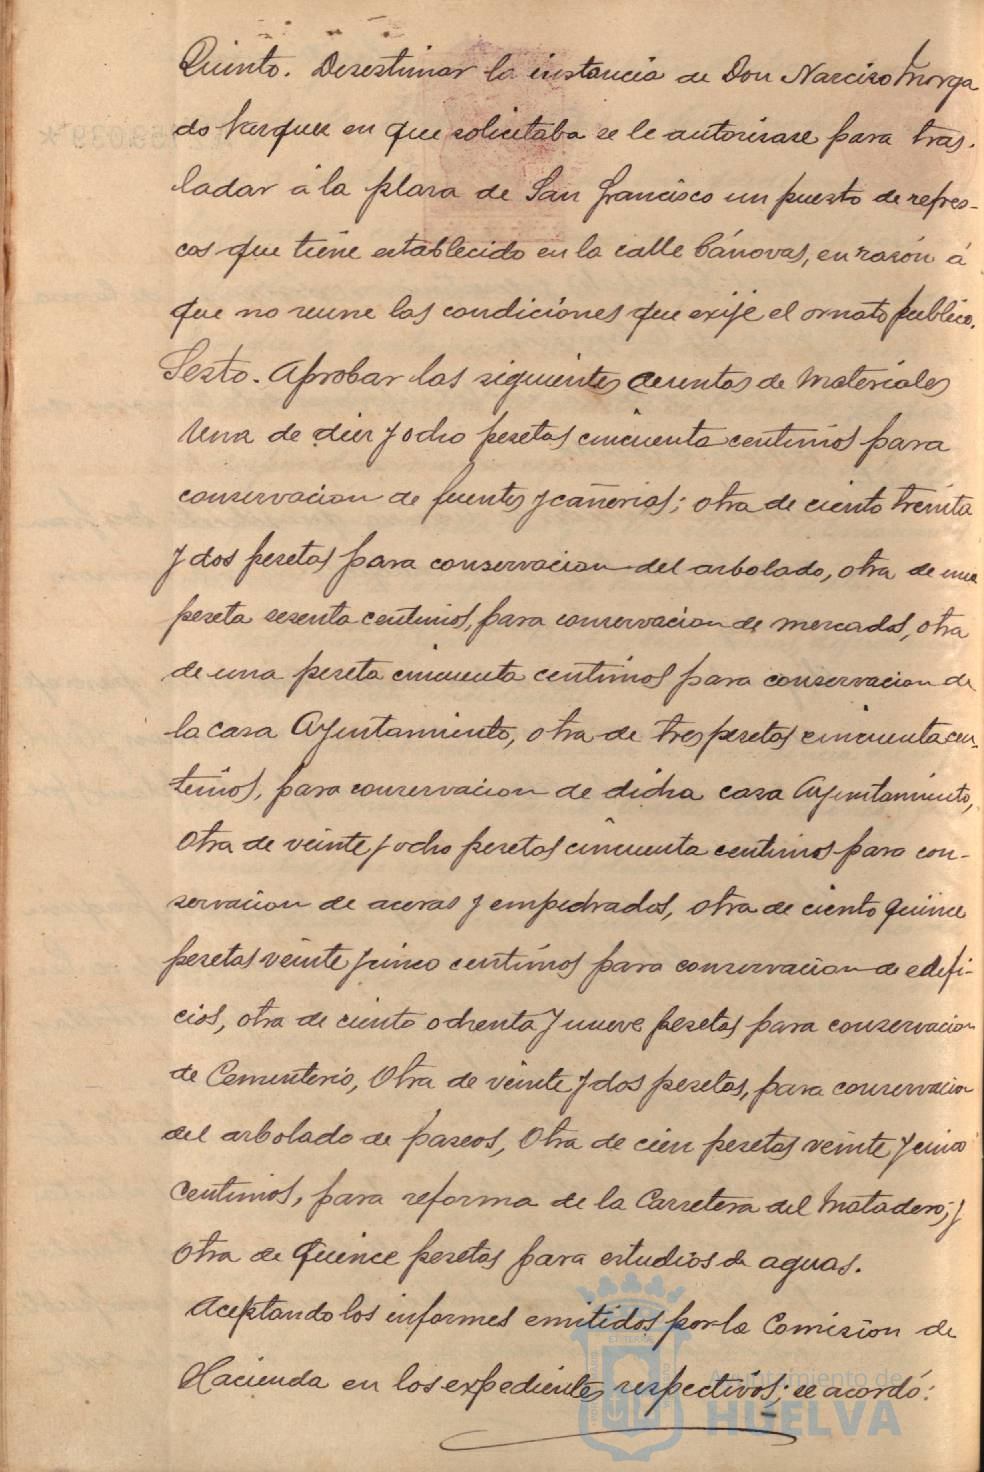 Quinto. Desestimar la instancia de Don Narciso Morga
do Vazquez en que solicitaba se le autorizase para tras-
ladar á la plaza de San Francisco un puesto de refres-
cos que tiene establecido en la calle Cánovas, en razón á
que no reune las condiciones que exije el ornato publico.
Sesto. Aprobar las siguientes cuentas de materiales
Una de diez y ocho pesetas cincuenta centimos para
conservacion de fuentes y cañerias; otra de ciento treinta
y dos pesetas para conservacion del arbolado, otra de una
peseta sesenta centimos, para conservacion de mercados, otra
de una peseta cincuenta centimos para conservacion de
la casa Ayuntamiento, otra de tres pesetas cincuenta cen-
timos, para conservacion de dicha casa Ayuntamiento,
otra de veinte y ocho pesetas cincuenta centimos para con-
servacion de aceras y empedrados, otra de ciento quince
pesetas veinte y cinco centimos para conservacion de edifi-
cios, otra de ciento ochenta y nueve pesetas para conservacion
de Cementerio, Otra de veinte y dos pesetas, para conservacion
del arbolado de paseos, Otra de cien pesetas veinte y cinco
centimos, para reforma de la Carretera del Matadero; y
otra de Quince pesetas para estudios de aguas.
Aceptando los informes emitidos por la Comision de
Hacienda en los expedientes respectivos; se acordó:
Ayuntamiento de
HUELVA